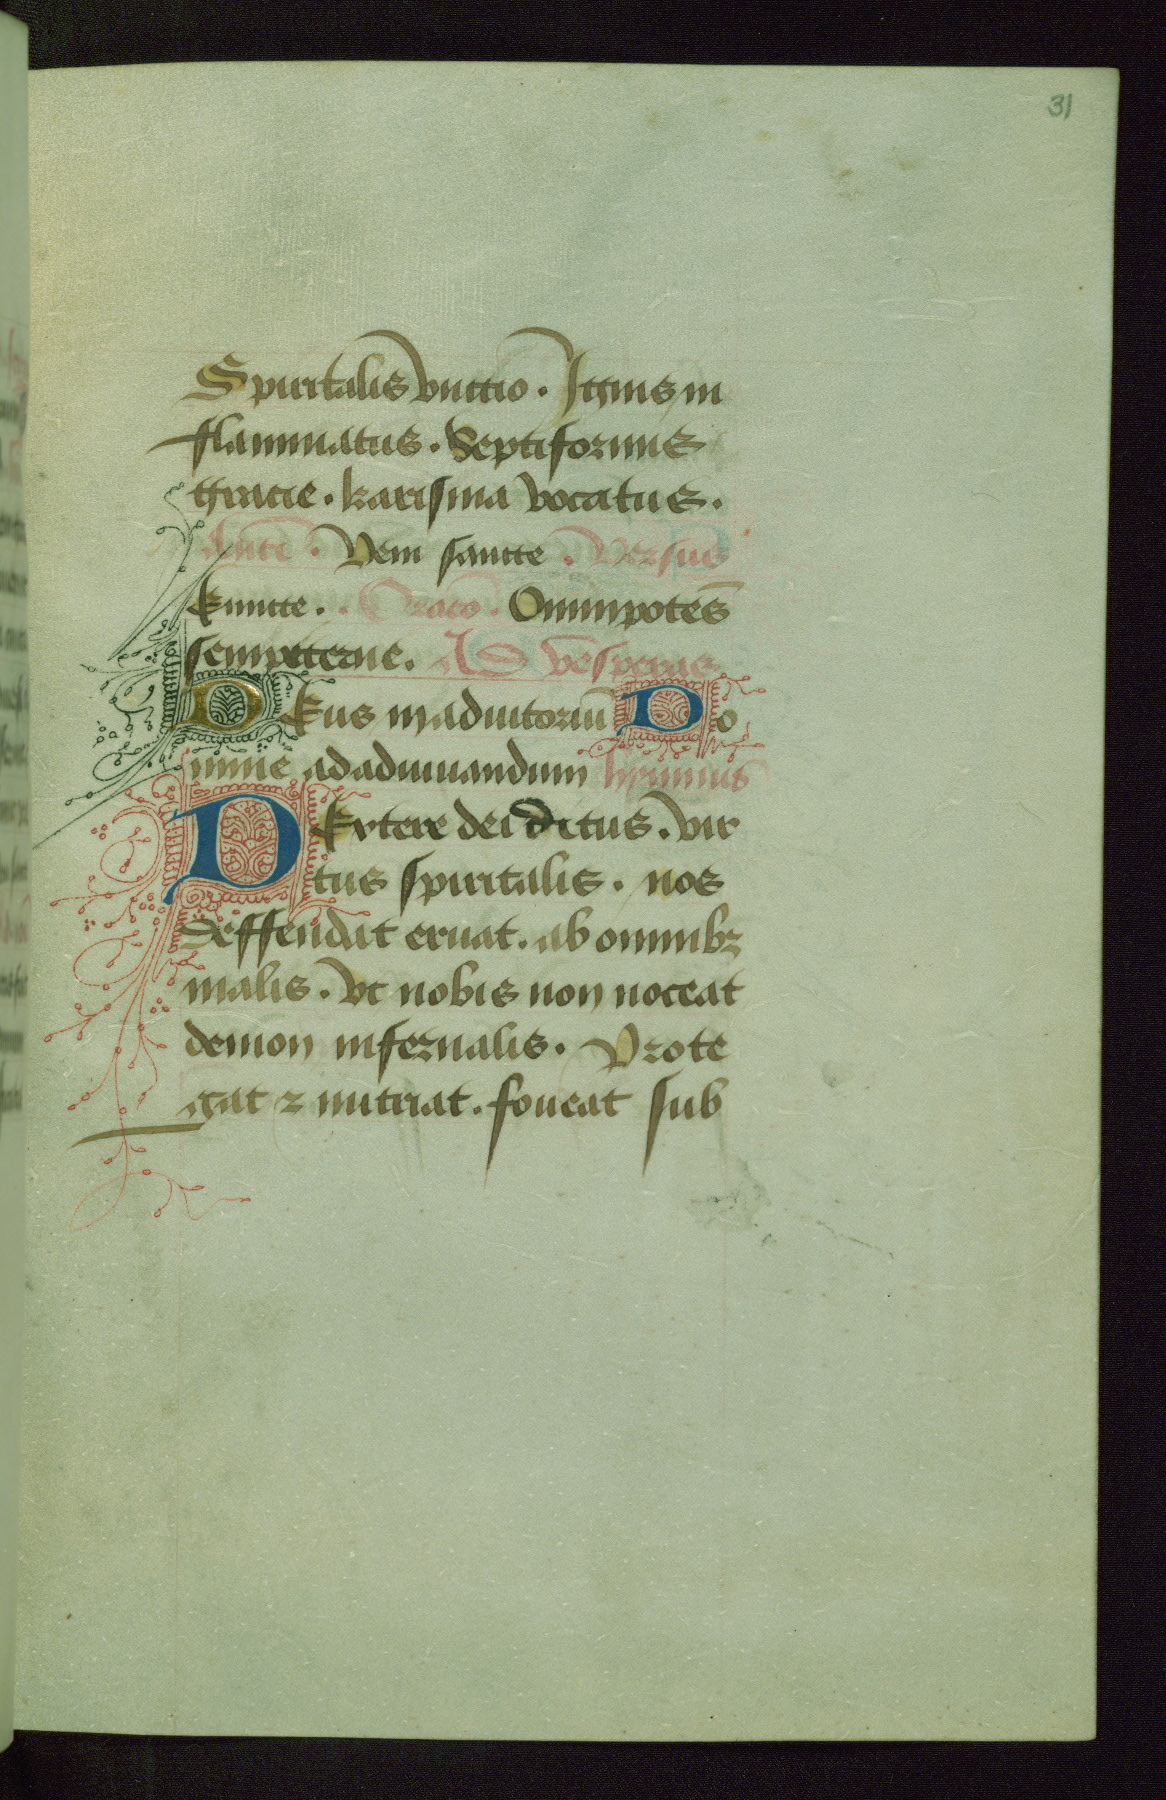 31
Spiritalis vnctio . Ignis in
flammatus . Septiformis
gracie . karisma vocatus .
Ante . Veni sancte . Versus
Emitte . . Oracō . Omnipotēs
sempiterne . Ad vēsperas
DEus in adiutoriū Do
mine ad adiuuandum hymnus
DExtere dei d itus . vir
tus spiritalis . nos
deffendat eruat . ab omnibꝫ
malis . Vt nobis non noceat
demon infernalis . Prote
gat ⁊ nutriat . foueat sub